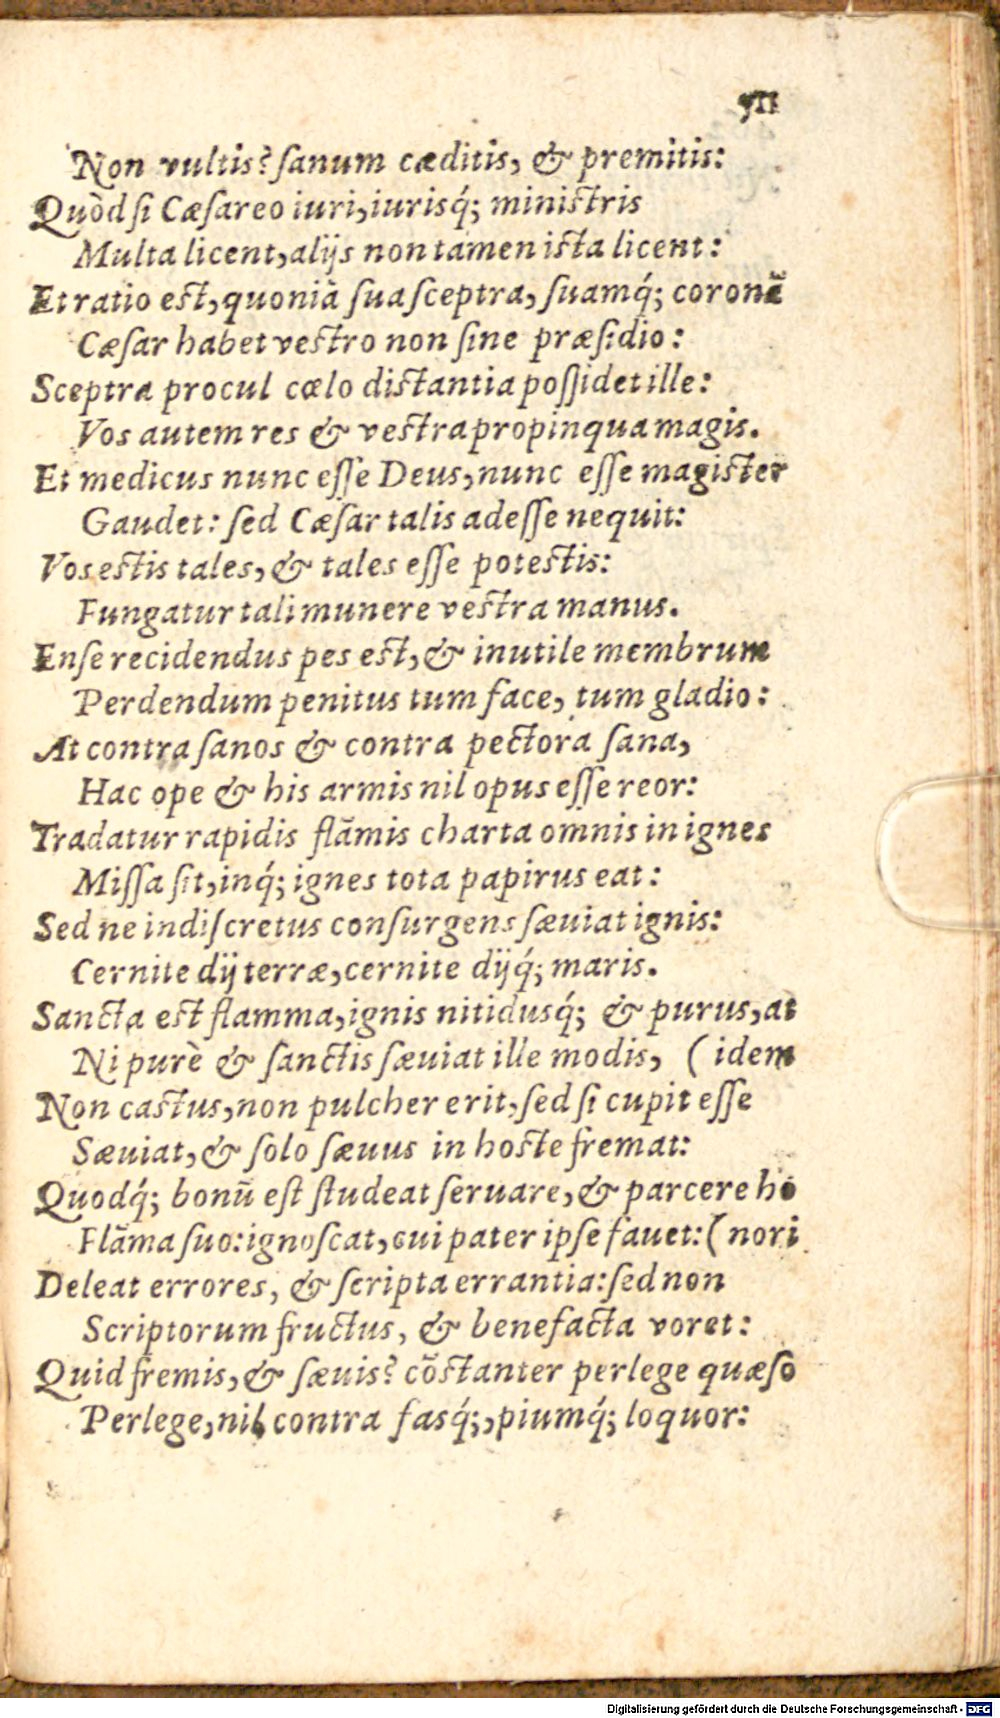 Non vultis? ſanum cæditis, & premitis:
Quòd ſi Cæſareo iuri, iurisq́; miniſtris
Multa licent, alijs non tamen iſta licent:
Et ratio eſt, quoniā ſua ſceptra, ſuamq́; coronā
Cæſar habet veſtro non ſine præſidio:
Sceptra procul cœlo diſtantia poſſidet ille:
Vos autem res & veſtra propinqua magis.
Et medicus nunc eſſe Deus, nunc eſſe magiſter
Gaudet: ſed Cæſar talis adeſſe nequit:
Vos eſtis tales, & tales eſſe poteſtis:
Fungatur tali munere veſtra manus.
Enſe recidendus pes eſt, & inutile membrum
Perdendum penitus tum face, tum gladio:
At contra ſanos & contra pectora ſana,
Hac ope & his armis nil opus eſſe reor:
Tradatur rapidis flāmis charta omnis in ignes
Miſſa ſit, inq́; ignes tota papirus eat:
Sed ne indiſcretus conſurgens ſæuiat ignis:
Cernite dij terræ, cernite dijq́; maris.
Sancta eſt flamma, ignis nitidusq́; & purus, at
Ni purè & ſanctis ſæuiat ille modis, (idem
Non caſtus, non pulcher erit, ſed ſi cupit eſſe
Sæuiat, & ſolo ſæuus in hoſte fremat:
Quodq́; bonū eſt ſtudeat ſeruare, & parcere ho
Flāma ſuo: ignoſcat, cui pater ipſe fauet: (nori
Deleat errores, & ſcripta errantia: ſed non
Scriptorum fructus, & benefacta voret:
Quid fremis, & ſæuis? cōſtanter perlege quæſo
Perlege, nil contra faſq́;, piumq́; loquor:
Digitalisierung gefördert durch die Deutsche Forschungsgemeinschaft - DFG